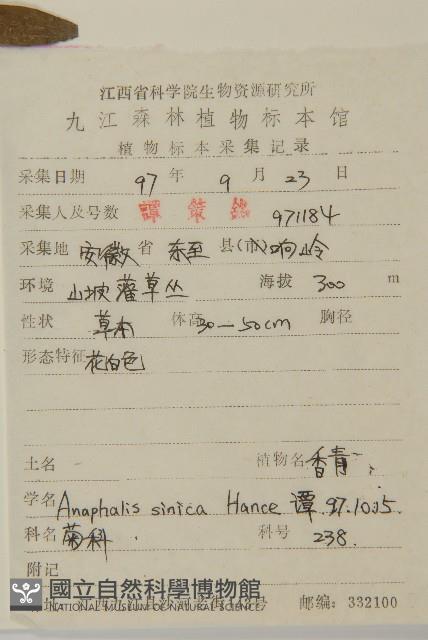 江西省科学院生物资源研究所
九江森林植物标本馆
植物标本采集记录
采集日期 97 年 9 月 23 日
采集人及号数 譚策銘 971184
采集地 安徽 省 东至 县(市) 响岭
环境 山坡灌草丛 海拔 300 m
性状 草本 体高 30—50cm 胸径
形态特征 花白色
土名 植物名 香青
学名 Anaphalis sinica Hance 谭 97.10.5.
科名 菊科 科号 238.
附记
國立自然科學博物館
NATIONAL MUSEUM OF NATURAL SCIENCE
邮编: 332100